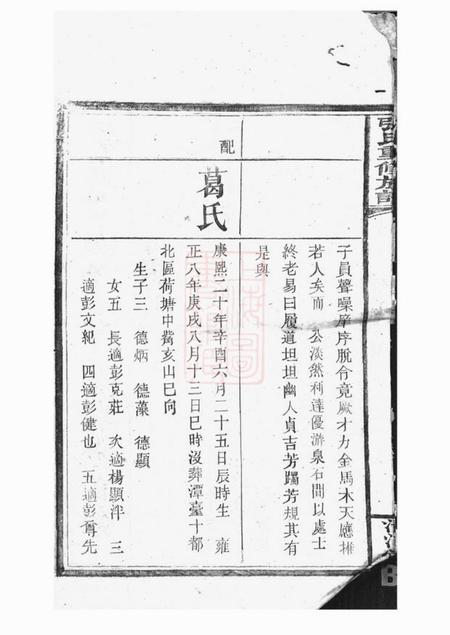 張氏重修族譜
子員聲噪庠序脫令竟厥才力金馬木天應推
若人矣而 公淡然利達優游泉石間以處士
終老易曰履道坦坦幽人貞吉芳躅芳規其有
是與
配
葛氏
康熙二十年辛酉六月二十五日辰時生 雍
正八年庚戌八月十三日巳時沒葬潭臺十都
北區荷塘中嘴亥山巳向
生子三 德炳 德藻 德顯
女五 長適彭克莊 次適楊顯泮 三
適彭文紀 四適彭健也 五適彭尊先
清河